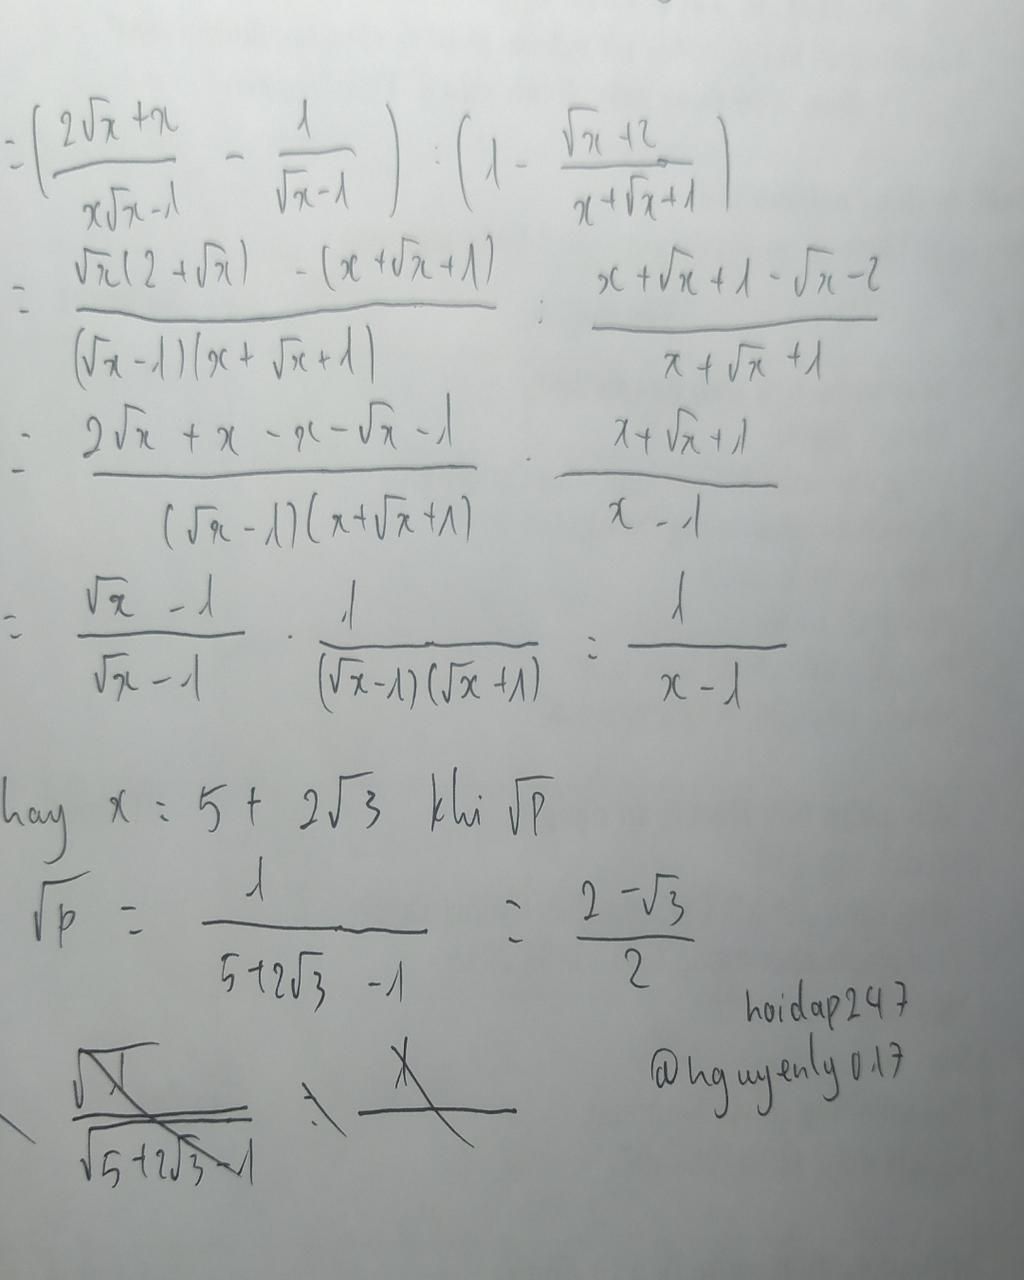 = ( (2√x + x)/(x√x - 1) - 1/(√x - 1) ) : ( 1 - (√x + 2)/(x + √x + 1) )
= (√x(2 + √x) - (x + √x + 1))/((√x - 1)(x + √x + 1)) : (x + √x + 1 - √x - 2)/(x + √x + 1)
= (2√x + x - x - √x - 1)/((√x - 1)(x + √x + 1)) . (x + √x + 1)/(x - 1)
= (√x - 1)/(√x - 1) . 1/((√x - 1)(√x + 1)) = 1/(x - 1)
hay x = 5 + 2√3 khi √P
√P = 1/(5 + 2√3 - 1) = (2 - √3)/2
hoidap247
@nguyenly017